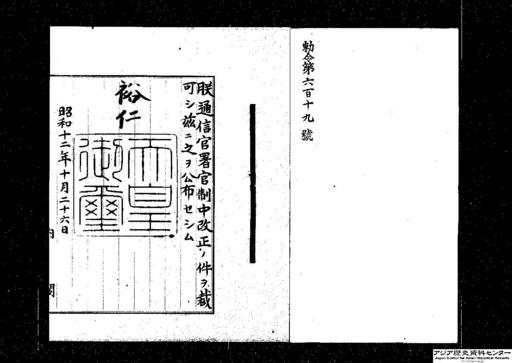 勅令第六百十九號
朕通信官署官制中改正ノ件ヲ裁
可シ茲ニ之ヲ公布セシム
裕仁
天皇御璽
昭和十二年十月二十六日
内閣
アジア歴史資料センター
Japan Center for Asian Historical Records